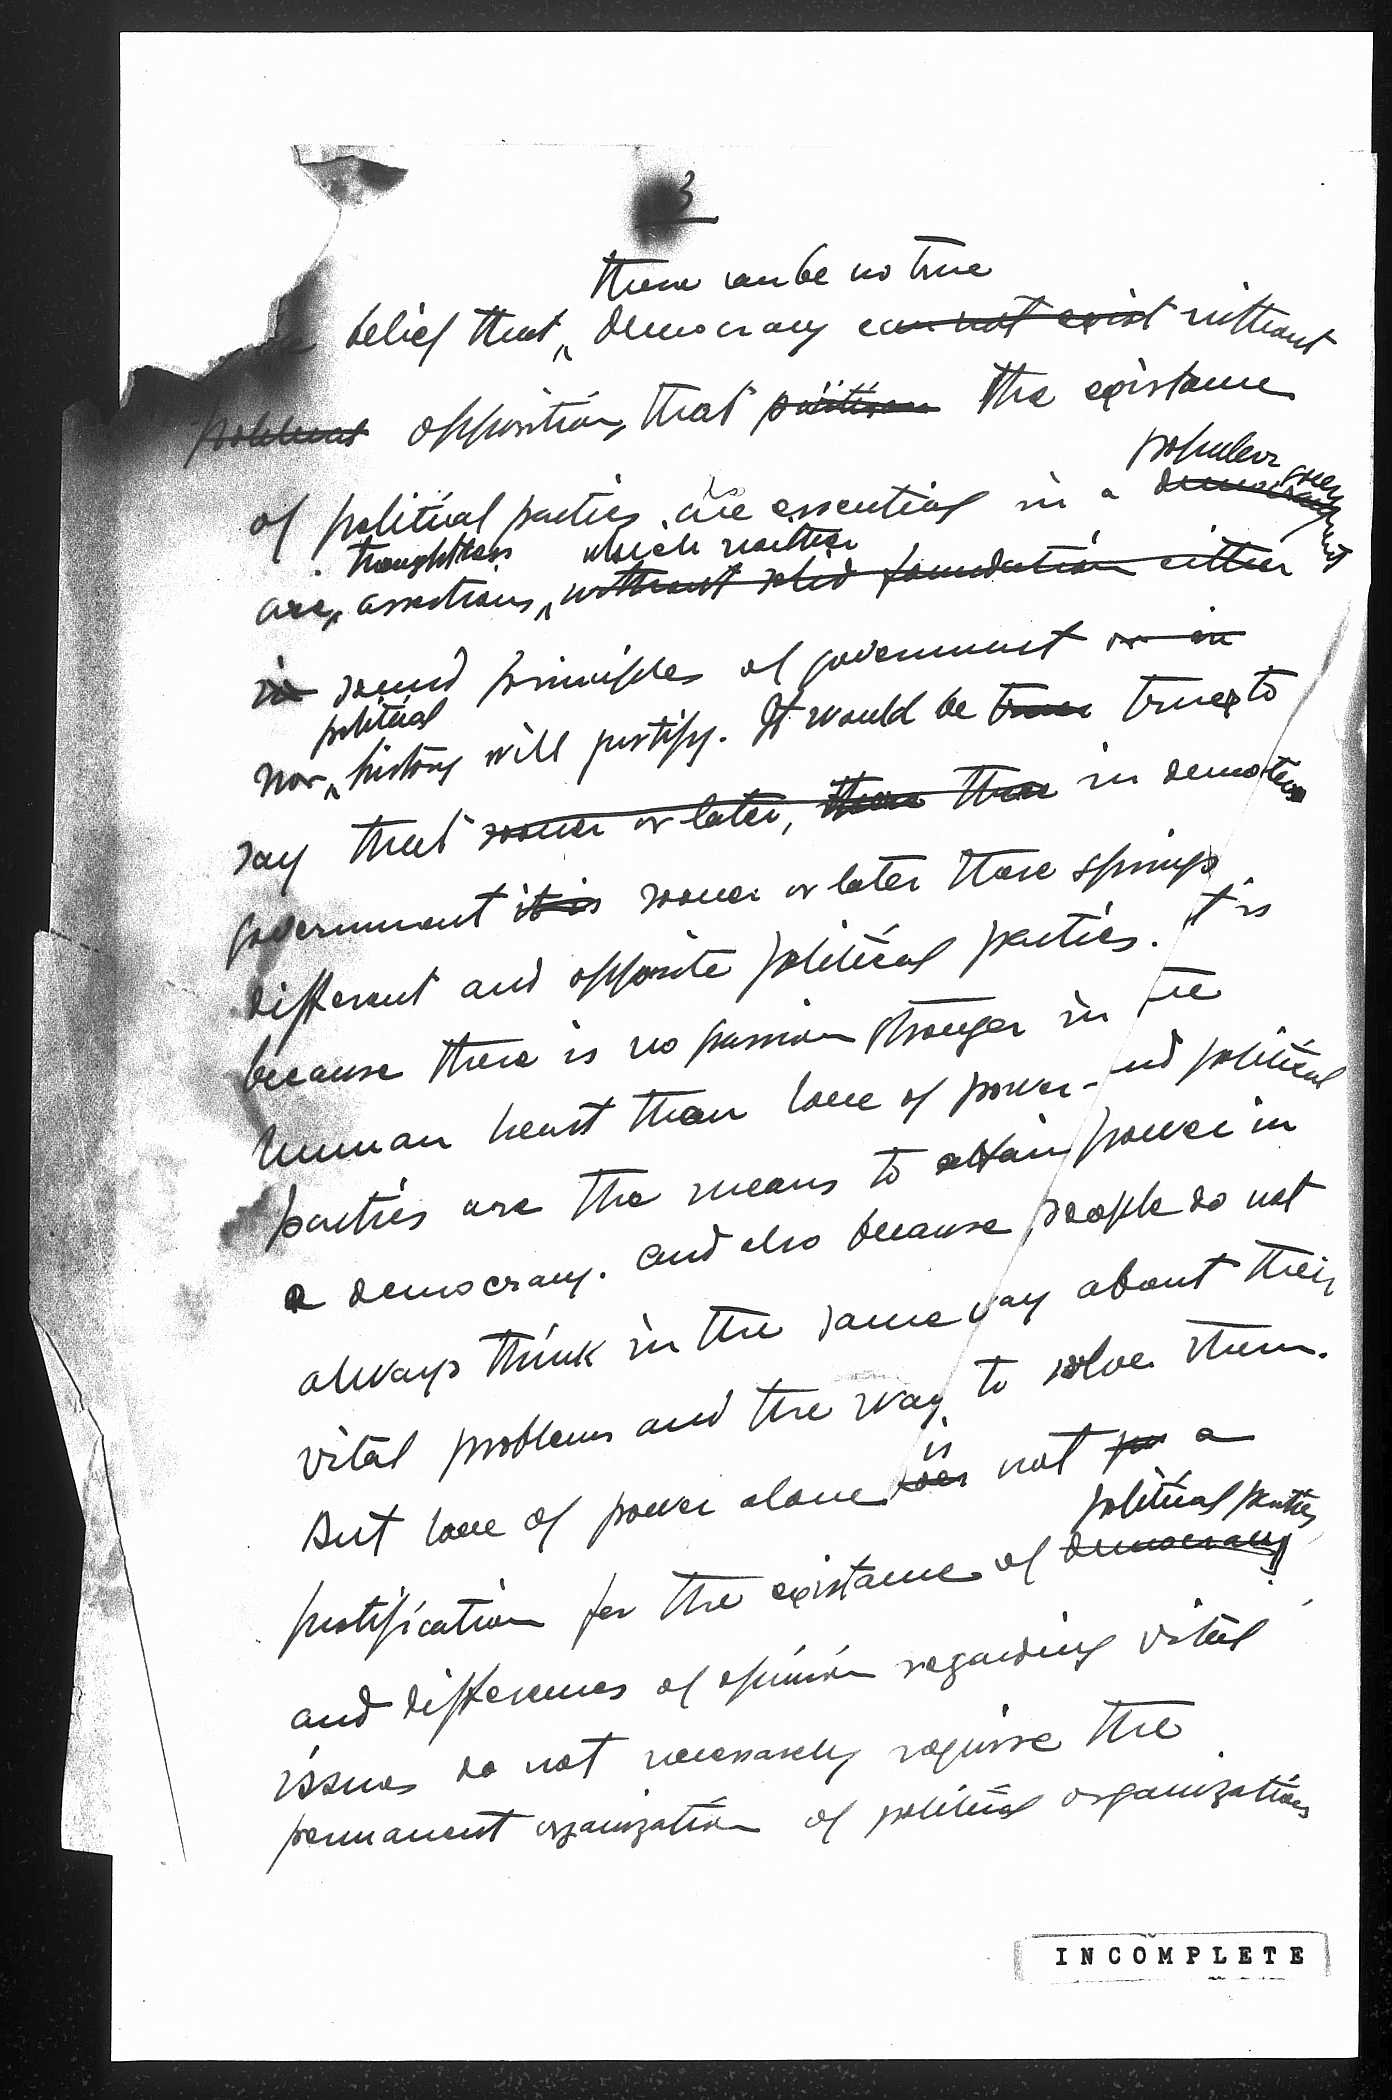 3
there can be no true
belief that democracy can not exist without
political opposition, that the existance
popular government
of political parties are essential in a democracy
thoughtless which neither
are, assertions, without solid foundation either
in sound principles of government or in
political
nor, history will justify. It would be truer truer to
say that sooner or later, there there in democratic
government it is sooner or later there springs
different and opposite political parties. It is
because there is no passion stronger in the
human heart than love of power - and political
parties are the means to attain power in
a democracy. And also because people do not
always think in the same way about their
vital problems and the way to solve them.
is
But love of power alone does not a
political parties
justification for the existance of democracy
and differences of opinion regarding vital
issues do not necessarely requise the
permanent organization of political organizations
INCOMPLETE